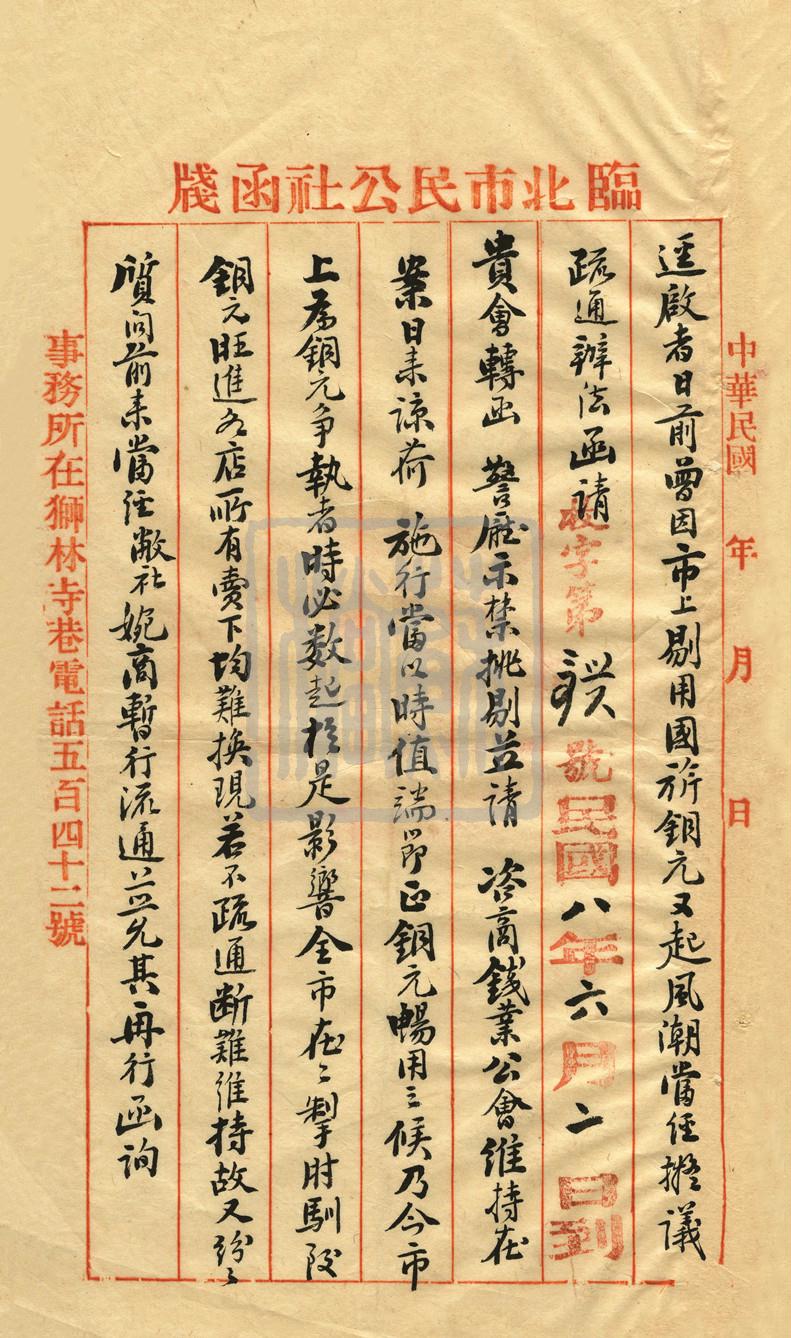 臨北市民公社函牋
中華民國 年 月 日
逕啟者日前曾因市上剔用國旂銅元又起風潮當經擬議
疏通辦法函請
收字第 號民國八年六月二日到
貴會轉函 警廳示禁挑剔並請 咨商錢業公會維持在
案日來諒荷 施行當以時值端節正銅元暢用之候乃今市
上為銅元爭執者時必數起於是影響全市在在掣肘馴致
銅元旺進各店所有賣下均難換現若不疏通斷難維持故又紛紛
質問前來當經敝社婉商暫行流通並允其再行函詢
事務所在獅林寺巷電話五百四十二號